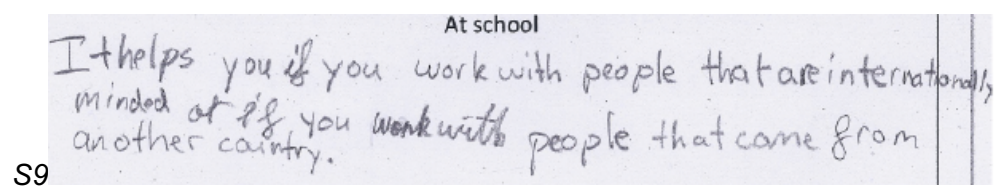 At school
It helps you if you work with people that are internationally
minded or if you work with people that come from
another caintry.
S9